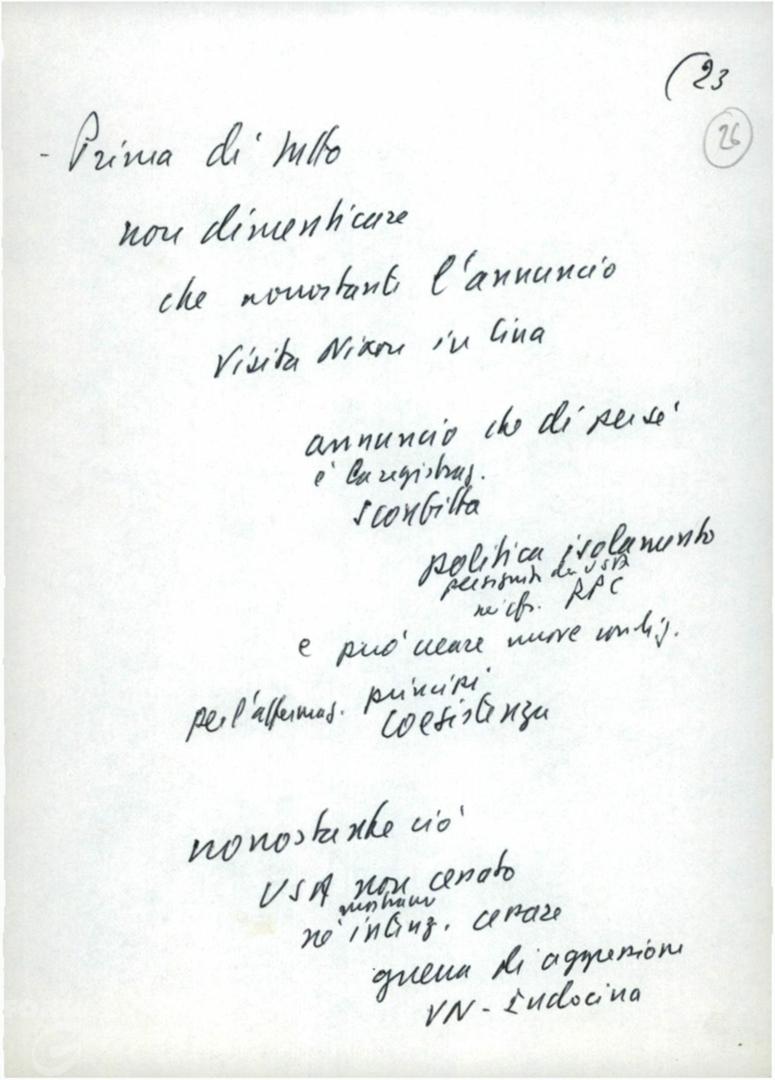 (23
26
- Prima di tutto
non dimenticare
che nonostante l'annuncio
Visita Nixon in Cina
annuncio che di per sé
è la registraz.
sconfitta
politica isolamento
perseguita da USA
nei cfr. RPC
e può creare nuove condiz.
per l'affermaz. principi
coesistenza
nonostante ciò
USA non cessato
mostrano
né intenz. cessare
guerra di aggressione
VN - Indocina